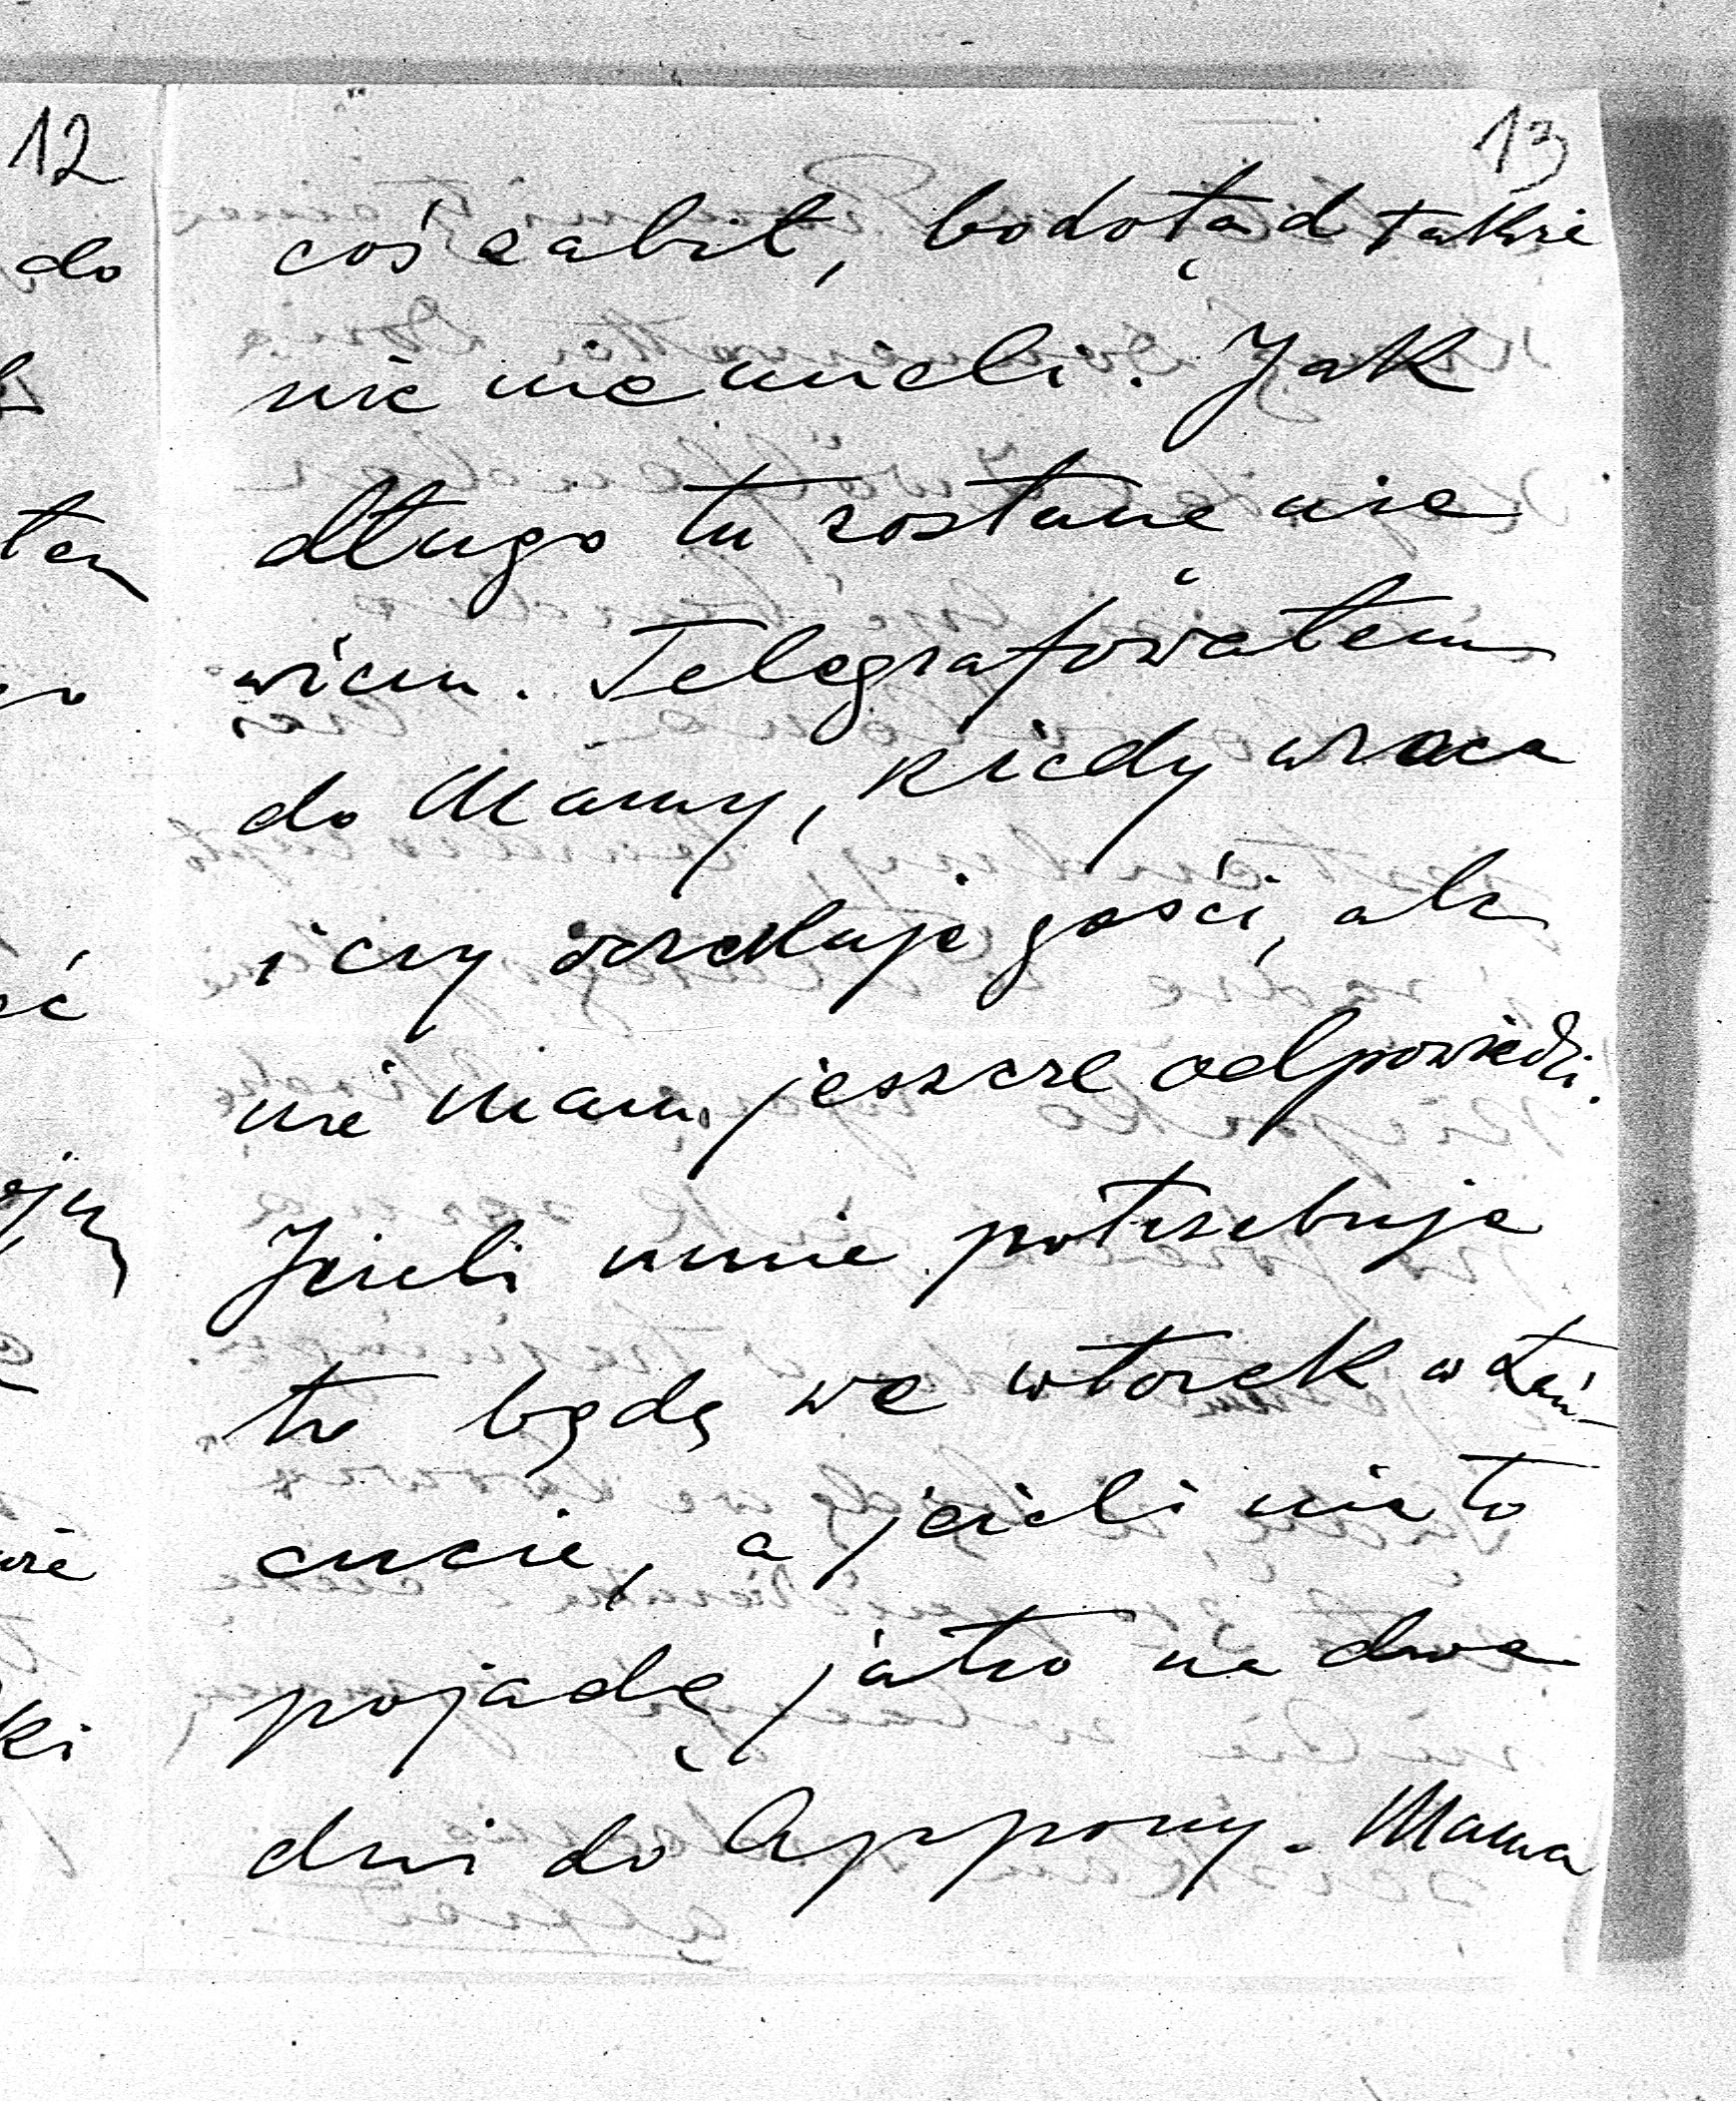 12
do
ten
go
ść
ki
13
coś zabił, bo dotąd także
nic nie mieli. Jak
długo tu zostanę nie
wiem. Telegrafowałem
do Mamy, kiedy wraca
i czy oczekuje gości, ale
nie mam jeszcze odpowiedzi.
Jeżeli mnie potrzebuje
to będę we wtorek w Łań-
cucie, a jeżeli nie to
pojadę jutro na dwa
dni do Appony. Mama